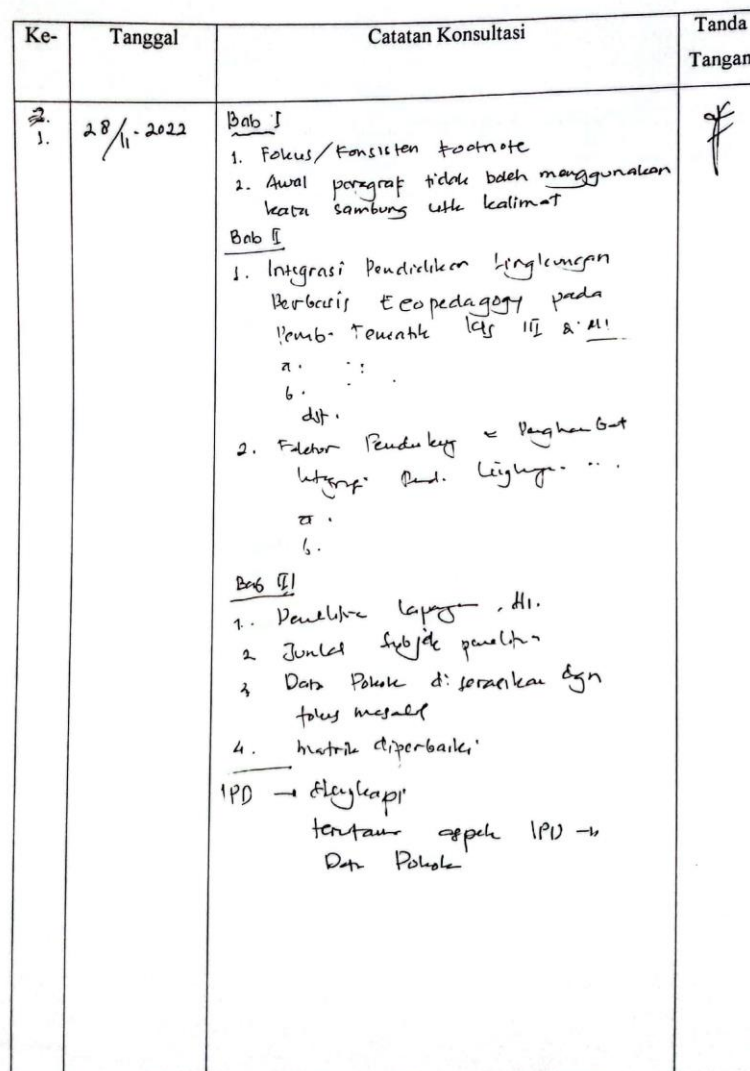 Ke-
Tanggal
Catatan Konsultasi
Tanda
Tangan
1.
28/11-2022
Bab I
1. Fokus/Konsisten Footnote
2. Awal paragraf tidak boleh menggunakan
kata sambung utk kalimat
Bab II
1. Integrasi Pendidikan Lingkungan
Berbasis Ecopedagogy pada
Pemb. Tematik kls III & MI
a.
b.
dst.
2. Faktor Pendukung & Penghambat
Integrasi Pend. Lingkungan ...
a.
b.
Bab III
1. Penelitian lapangan,
2 Jumlah Subjek penelitian
3 Data Pokok diserasikan dgn
fokus masalah
4. Matrik diperbaiki
IPD → dilengkapi
terutama aspek IPD →
Data Pokok